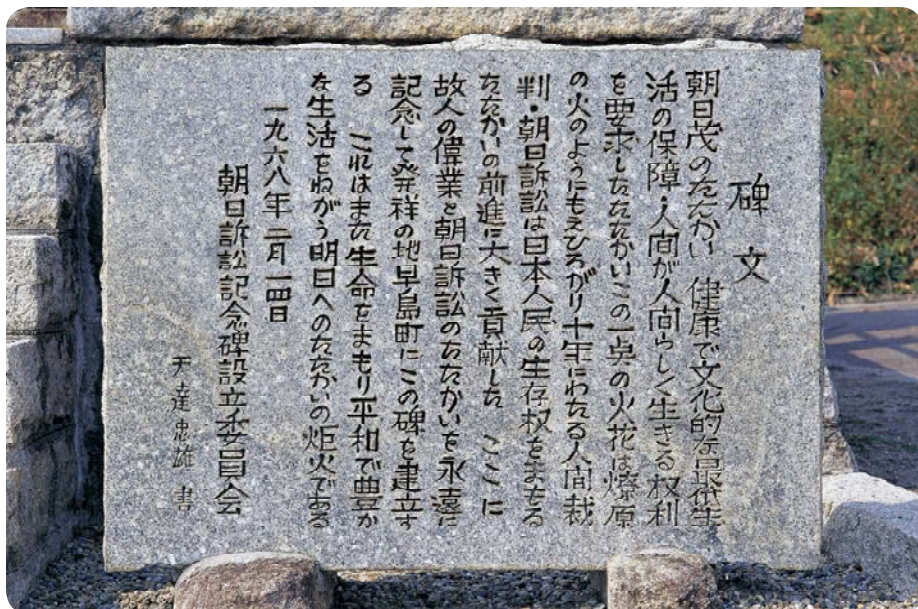 碑文
朝日茂のたたかい 健康で文化的な最低生
活の保障・人间が人间らしく生きる权利
を要求したたたかいこの一点の火花は燎原
の火のようにもえひろがり十年にわたる人間裁
判・朝日訴訟は日本人民の生存权をまもる
たたかいの前進に大きく貢献した ここに
故人の偉業と朝日訴訟のたたかいを永遠に
記念して発祥の地早島町にこの碑を建立す
る これはまた生命をまもり平和で豊か
な生活をねがう明日へのたたかいの炬火である
一九六八年二月一四日
朝日訴訟記念碑設立委員会
天達忠雄 書